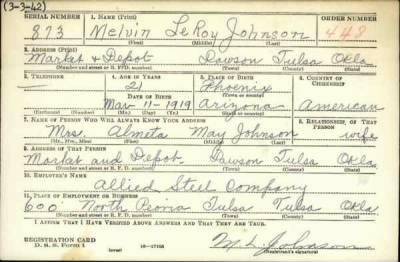 (3-3-42)
SERIAL NUMBER 1. NAME (Print) ORDER NUMBER
873 Melvin LeRoy Johnson 448
(First) (Middle) (Last)
2. ADDRESS (Print)
Market & Depot Dawson Tulsa Okla
(Number and street or R. F. D. number) (Town) (County) (State)
3. TELEPHONE 4. AGE IN YEARS 5. PLACE OF BIRTH 6. COUNTRY OF CITIZENSHIP
— 21 Phoenix
DATE OF BIRTH (Town or county)
Mar 11-1919 Arizona American
(Exchange) (No.) (Mo.) (Day) (Yr.) (State or country)
7. NAME OF PERSON WHO WILL ALWAYS KNOW YOUR ADDRESS 8. RELATIONSHIP OF THAT PERSON
Mrs. Almeta May Johnson wife
(Mr., Mrs., Miss) (First) (Middle) (Last)
9. ADDRESS OF THAT PERSON
Market and Depot- Dawson Tulsa Okla
(Number and street or R. F. D. number) (Town) (County) (State)
10. EMPLOYER'S NAME
Allied Steel Company
11. PLACE OF EMPLOYMENT OR BUSINESS
600 North Peoria Tulsa Tulsa Okla
(Number and street or R. F. D. number) (Town) (County) (State)
I AFFIRM THAT I HAVE VERIFIED ABOVE ANSWERS AND THAT THEY ARE TRUE.
REGISTRATION CARD
D. S. S. Form 1 (over) 16—17105 M. L. Johnson
(Registrant's signature)